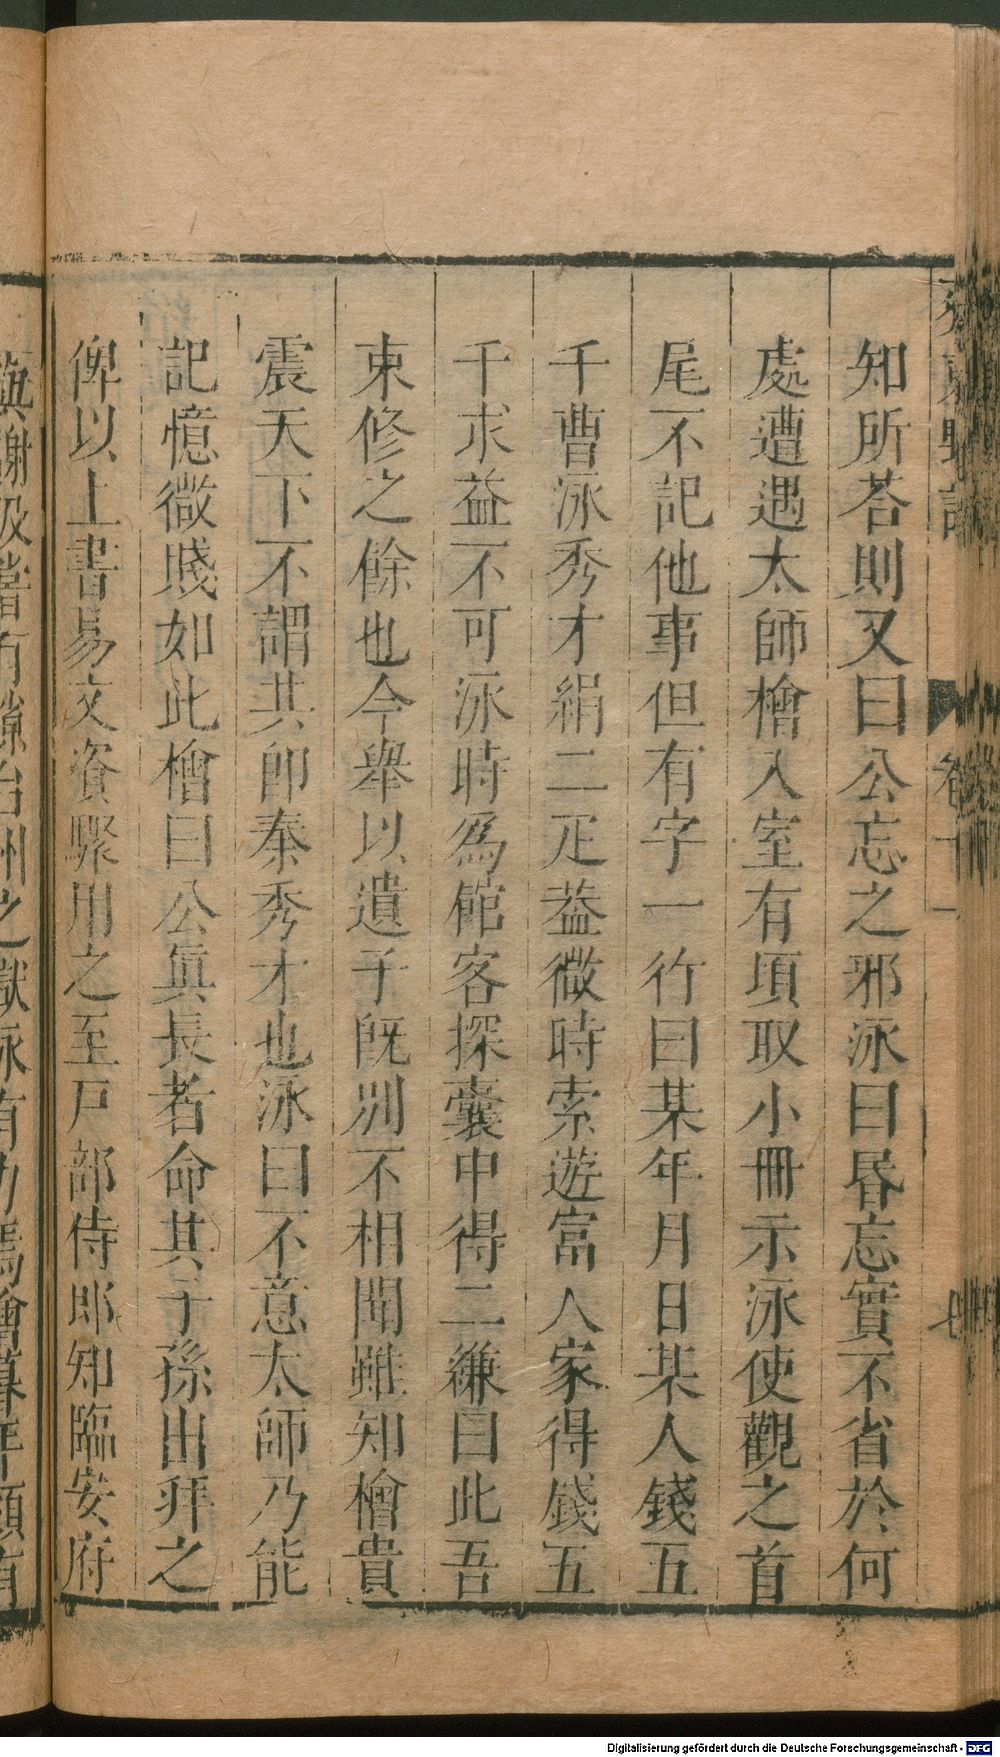 知所荅則又曰公忘之邪泳曰昬忘實不省於何
處遭遇太師檜入室有頃取小冊示泳使觀之首
尾不記他事但有字一行曰某年月日某人錢五
千曹泳秀才絹二疋葢微時索遊富人家得錢五
千求益不可泳時爲館客探囊中得二縑曰此吾
束修之餘也今舉以遺子旣別不相聞雖知檜貴
震天下不謂其卽秦秀才也泳曰不意太師乃能
記憶微賤如此檜曰公眞長者命其子孫出拜之
俾以上書易文資驟用之至戸部侍郎知臨安府
齊東野語 卷十一 七
Digitalisierung gefördert durch die Deutsche Forschungsgemeinschaft - DFG